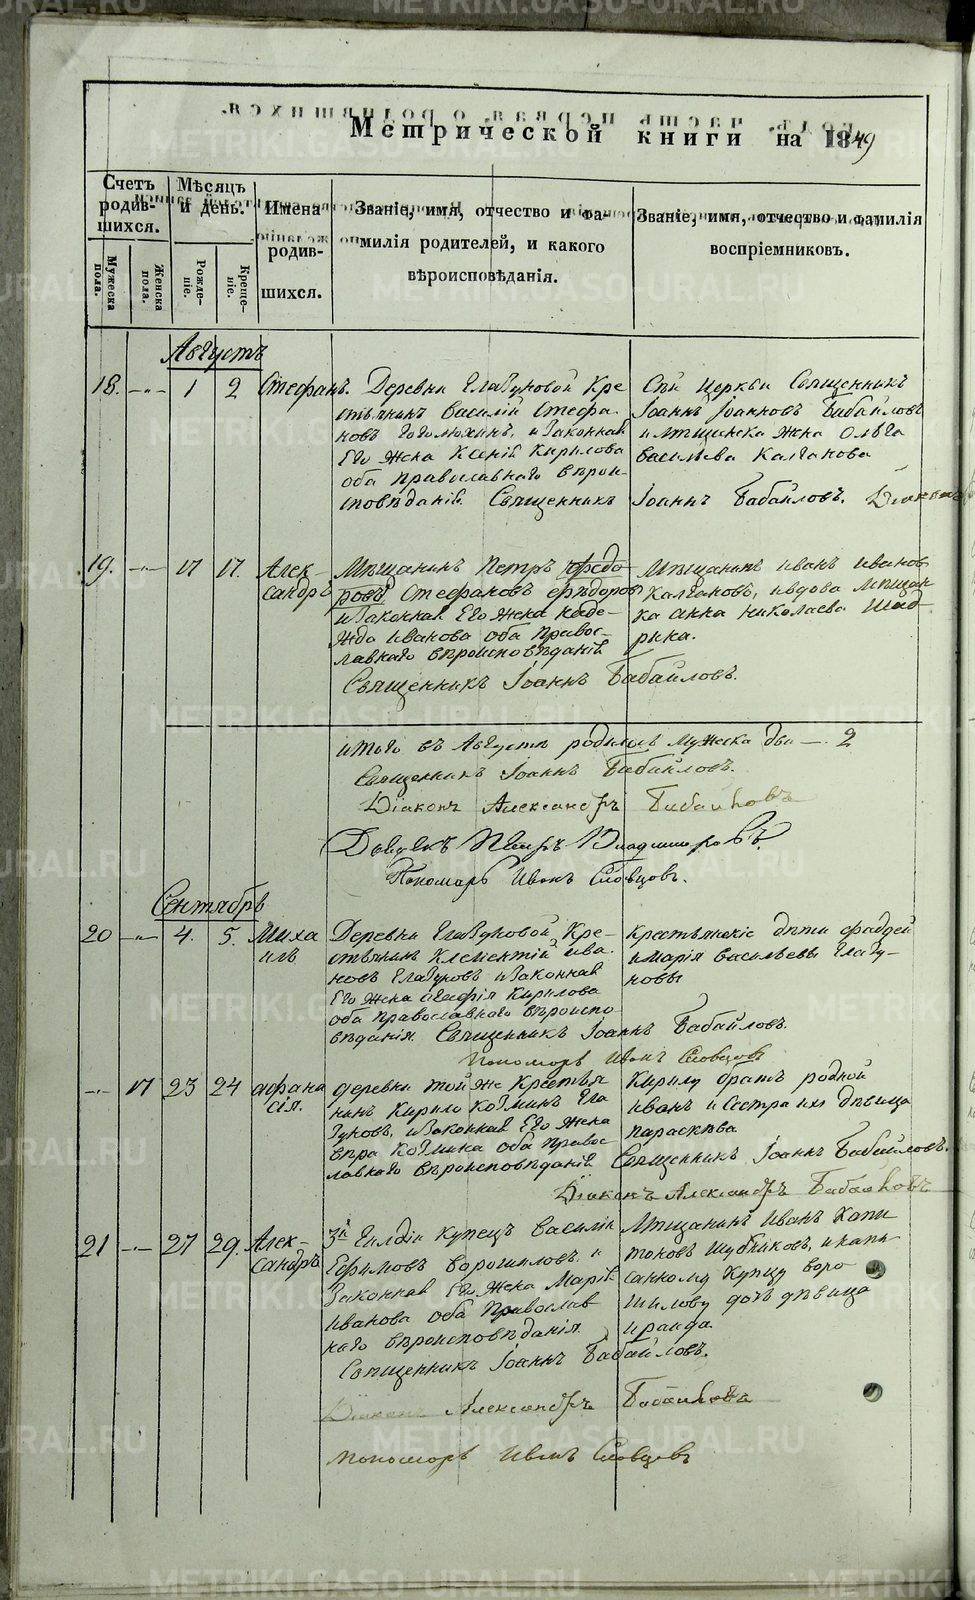 Метрической книги на 1849
Счетъ родив-шихся.
Мужеска пола.
Женска пола.
Мѣсяцъ и день.
Рожде-ніе.
Креще-ніе.
Имена родив-шихся.
Званіе, имя, отчество и фа-
милія родителей, и какого
вѣроисповѣданія.
Званіе, имя, отчество и фамилія
воспріемниковъ.
Августъ
18. 1 2 Стефанъ.
Деревни Глазуновой Кре-
стьянинъ Василій Стефа-
новъ, и Законная
Его Жена Ксенія Кирилова
оба Православнаго Вѣрои-
сповѣданія Священникъ Іоаннъ Бабайловъ. Діаконъ
Сей церкви Священникъ
Іоаннъ Іоанновъ Бабайловъ
и Мѣщанска Жена Ольга
Васильева Калганова
19. 17 17. Алек-
сандръ
Мѣщанинъ Петръ Ѳедо
ровъ Стефановъ Ѳедоровъ
и Законная Его Жена Наде-
жда Иванова оба Правос-
лавнаго Вѣроисповѣданія
Священникъ Іоаннъ Бабайловъ.
Мѣщанинъ Иванъ Иванов
Калгановъ, и вдова Мѣщан-
ка Анна Николаева Шад-
рина.
Итого въ Августѣ родилось Мужеска два — 2
Священникъ Іоаннъ Бабайловъ.
Діаконъ Александръ Бабайловъ
Дьячекъ Петръ Владимировъ.
Пономарь Иванъ Словцовъ.
Сентябрь
20 4. 5. Миха
илъ
Деревни Глазуновой Кре-
стьянинъ Клементій Ива-
новъ Глазуновъ и Законная
Его Жена Агафія Кирилова
оба Православнаго Вѣроиспо-
вѣданія. Священникъ Іоаннъ Бабайловъ.
Пономарь Иванъ Словцовъ
Крестьянскіе дѣти Фаддей
и Марія Васильевы Глазу-
новы
17 23 24 Афана
сія.
Деревни той же Крестья
нинъ Кирило Козминъ Гла
зуновъ, и Законная Его Жена
Вѣра Козмина оба Правос-
лавнаго Вѣроисповѣданія Священникъ Іоаннъ Бабайловъ.
Діаконъ Александръ Бабайловъ
Кирилу братъ родной
Иванъ и Сестра ихъ дѣвица
Параскѣва
21 27 29. Алек-
сандръ
3й Гилдіи Купецъ Василій
Ефимовъ Ворошиловъ и
Законная Его Жена Марія
Иванова оба Православ
наго Вѣроисповѣданія
Священникъ Іоаннъ Бабайловъ.
Діаконъ Александръ Бабайловъ
Пономарь Иванъ Словцовъ
Мѣщанинъ Иванъ Капи
тоновъ Шубниковъ, и
Купцу Воро
шилову дочь дѣвица
Ираида
METRIKI.GASO-URAL.RU